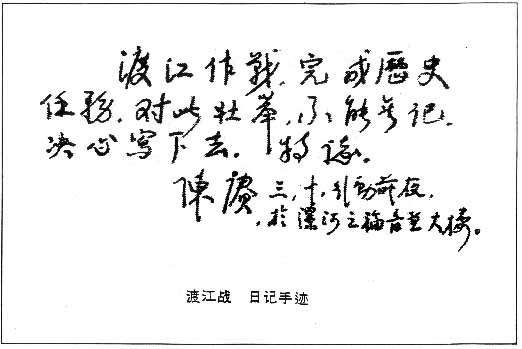 渡江作戰,完成歷史
任務,对此壮举,不能无记,
决心写下去。特誌。
陳賡 三,十,引動前夜,
於漯河之福音堂大楼。
渡江战 日记手迹